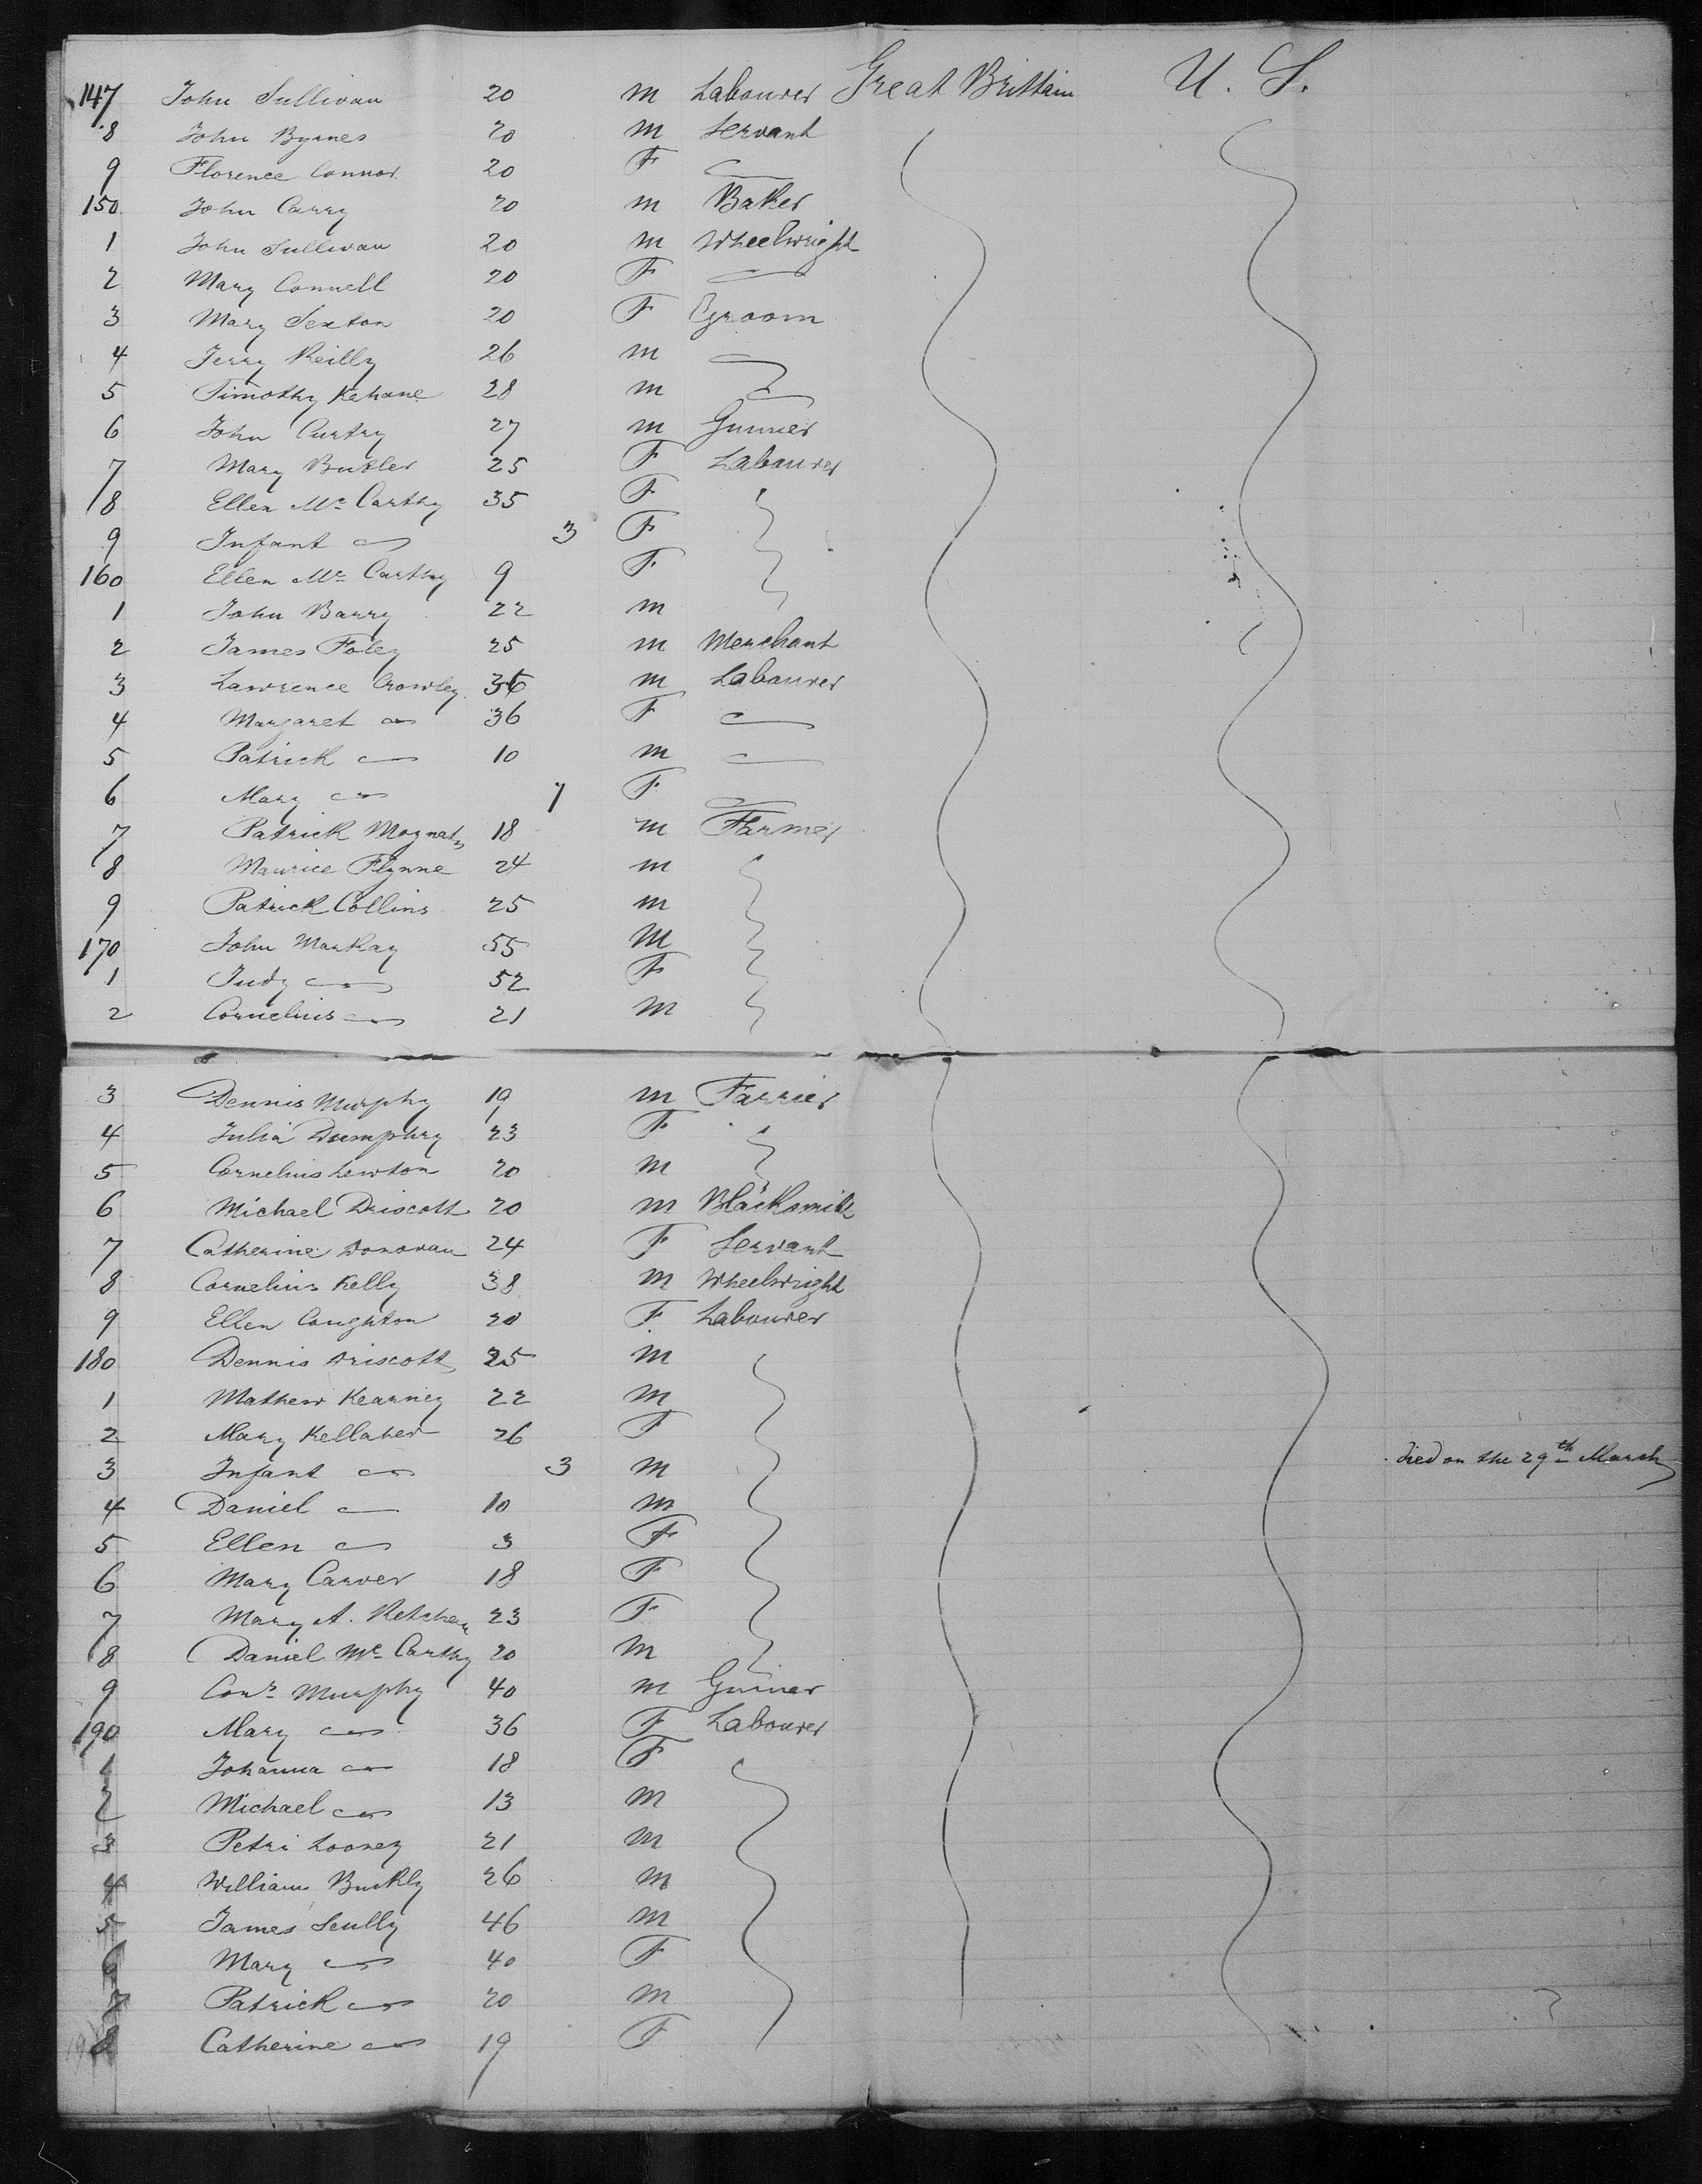 147 John Sullivan 20 m Labourer Great Brittain U. S.
8 John Byrnes 20 m Servant
9 Florence Connor 20 F
150 John Carry 20 m Baker
1 John Sullivan 20 m Wheelwright
2 Mary Connell 20 F
3 Mary Sexton 20 F Groom
4 Jerry Reilly 26 m
5 Timothy Kehane 28 m
6 John Curtry 27 m Gunner
7 Mary Butler 25 F Labourer
8 Ellen Mc Carthy 35 F
9 Infant 3 F
160 Ellen Mc Carthy 9 F
1 John Barry 22 m
2 James Foley 25 m Merchant
3 Lawrence Crowley 36 m Labourer
4 Margaret 36 F
5 Patrick 10 m
6 Mary 7 F
7 Patrick 18 m Farmer
8 Maurice Flynne 24 m
9 Patrick Collins 25 m
170 John Markay 55 M
1 Judy 52 F
2 Cornelius 21 m
3 Dennis Murphy 19 m Farrier
4 Julia Dumphry 23 F
5 Cornelius Lewton 20 m
6 Michael Driscott 20 m Blacksmith
7 Catherine Donovan 24 F Servant
8 Cornelius Kelly 38 m Wheelwright
9 Ellen Coughton 20 F Labourer
180 Dennis Driscott 25 m
1 Mathew Kearney 22 m
2 Mary Kellaher 26 F
3 Infant 3 m died on the 29th March
4 Daniel 10 m
5 Ellen 3 F
6 Mary Carver 18 F
7 Mary A. 23 F
8 Daniel Mc Carthy 20 m
9 Cons Murphy 40 m Gunner
190 Mary 36 F Labourer
1 Johanna 18 F
2 Michael 13 m
3 Petri Looney 21 m
4 William Buckly 26 m
5 James Scully 46 m
6 Mary 40 F
7 Patrick 20 m
198 Catherine 19 F